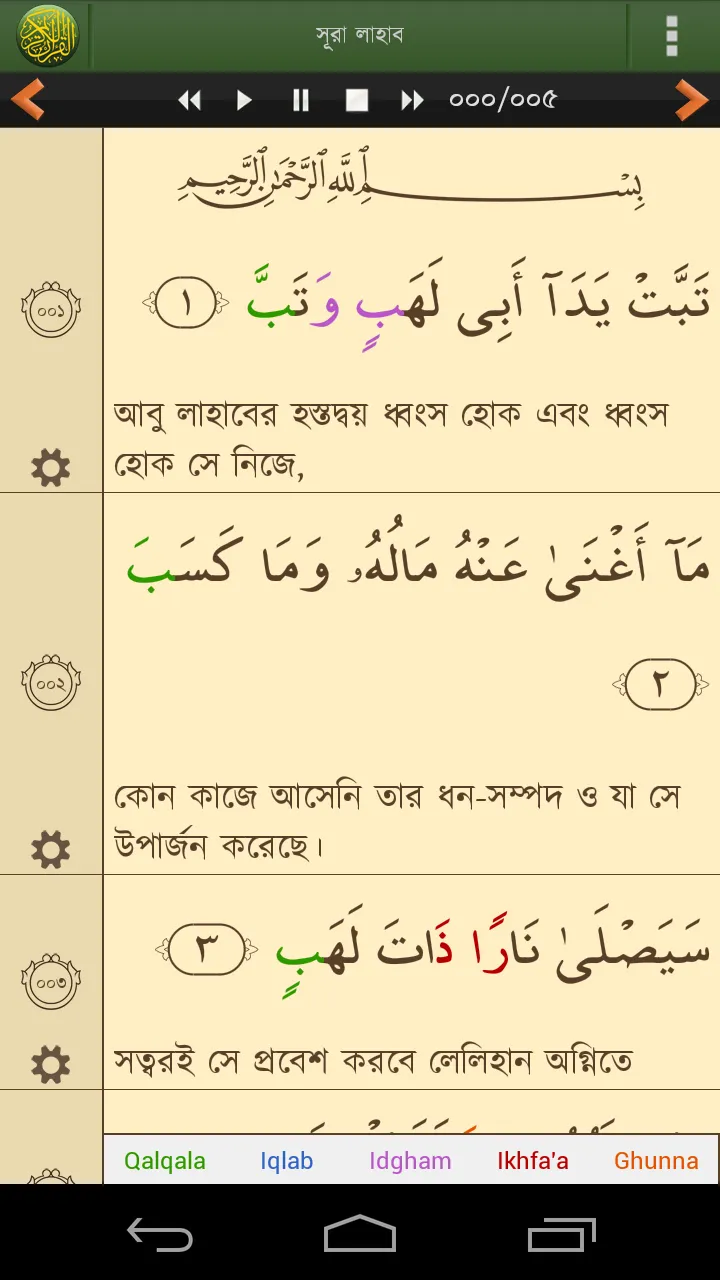 সূরা লাহাব
০০০/০০৫
بِسْمِ ٱللَّهِ ٱلرَّحْمَٰنِ ٱلرَّحِيمِ
تَبَّتْ يَدَآ أَبِى لَهَبٍ وَتَبَّ ١
০০১
আবু লাহাবের হস্তদ্বয় ধ্বংস হোক এবং ধ্বংস
হোক সে নিজে,
مَآ أَغْنَىٰ عَنْهُ مَالُهُۥ وَمَا كَسَبَ
٢
০০২
কোন কাজে আসেনি তার ধন-সম্পদ ও যা সে
উপার্জন করেছে।
سَيَصْلَىٰ نَارًا ذَاتَ لَهَبٍ ٣
০০৩
সত্বরই সে প্রবেশ করবে লেলিহান অগ্নিতে
Qalqala Iqlab Idgham Ikhfa'a Ghunna